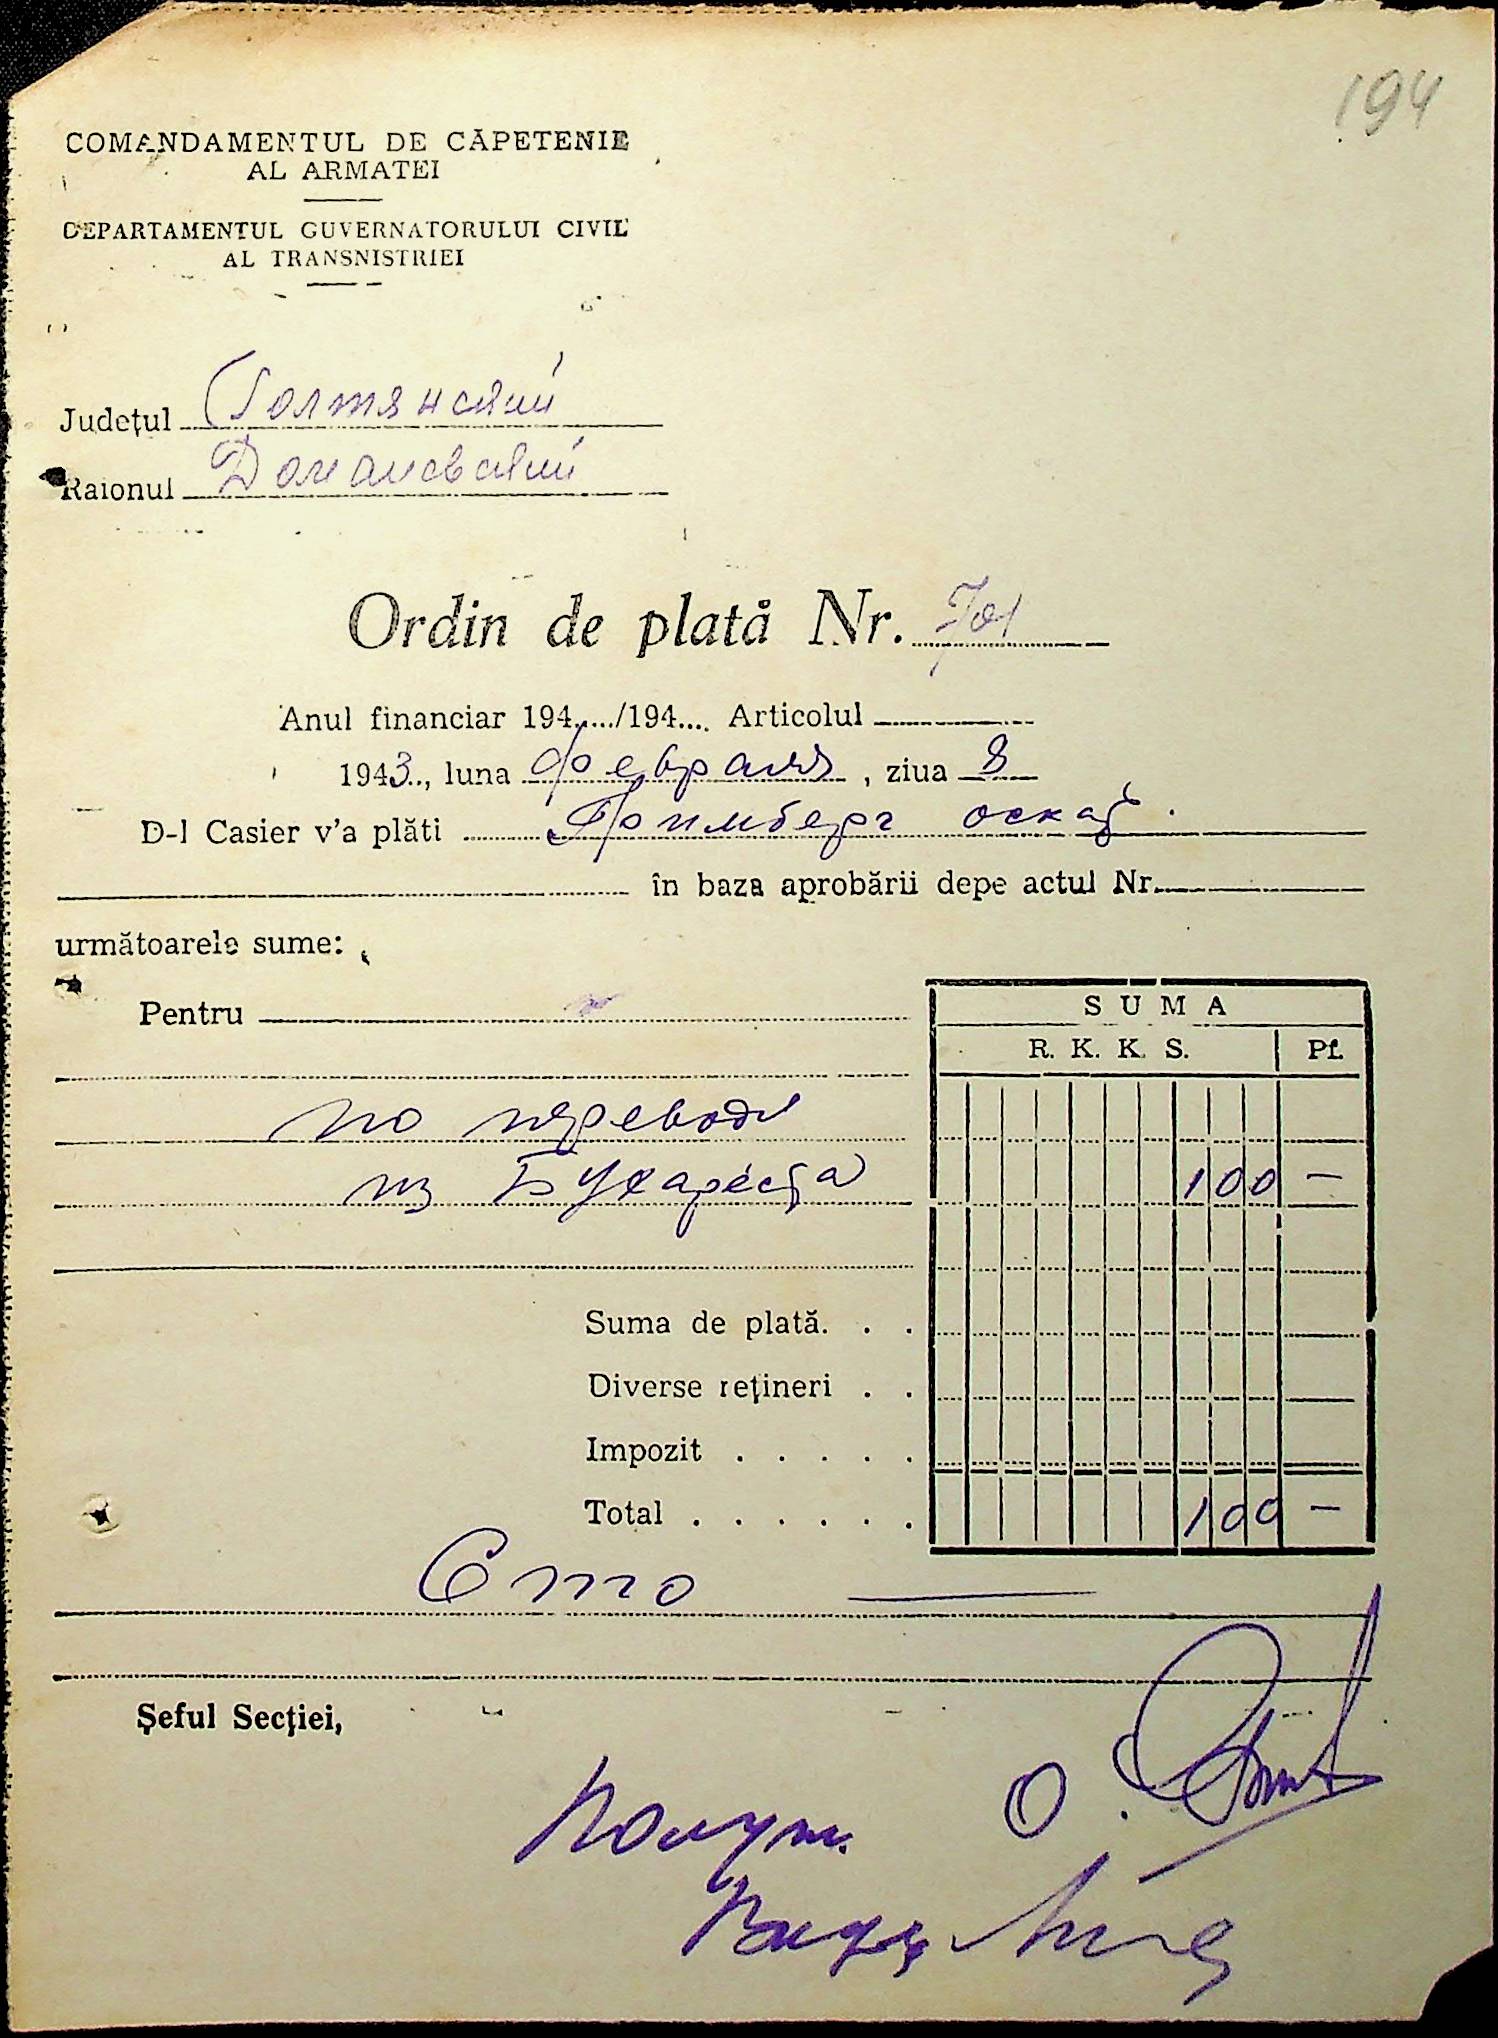 194
COMANDAMENTUL DE CĂPETENIE
AL ARMATEI
DEPARTAMENTUL GUVERNATORULUI CIVIL
AL TRANSNISTRIEI
Județul Голтянский
Raionul Доманевский
Ordin de plată Nr. 701
Anul financiar 194..../194.... Articolul
1943.., luna февраля, ziua 8
D-l Casier v'a plăti Гримберг оскар
în baza aprobării depe actul Nr.
următoarele sume:
Pentru
SUMA
R. K. K. S. Pf.
по переводу
из Бухареста 100 —
Suma de plată. . .
Diverse rețineri . .
Impozit . . . . .
Total . . . . . . 100 —
Сто —
Șeful Secției,
Получ. О.